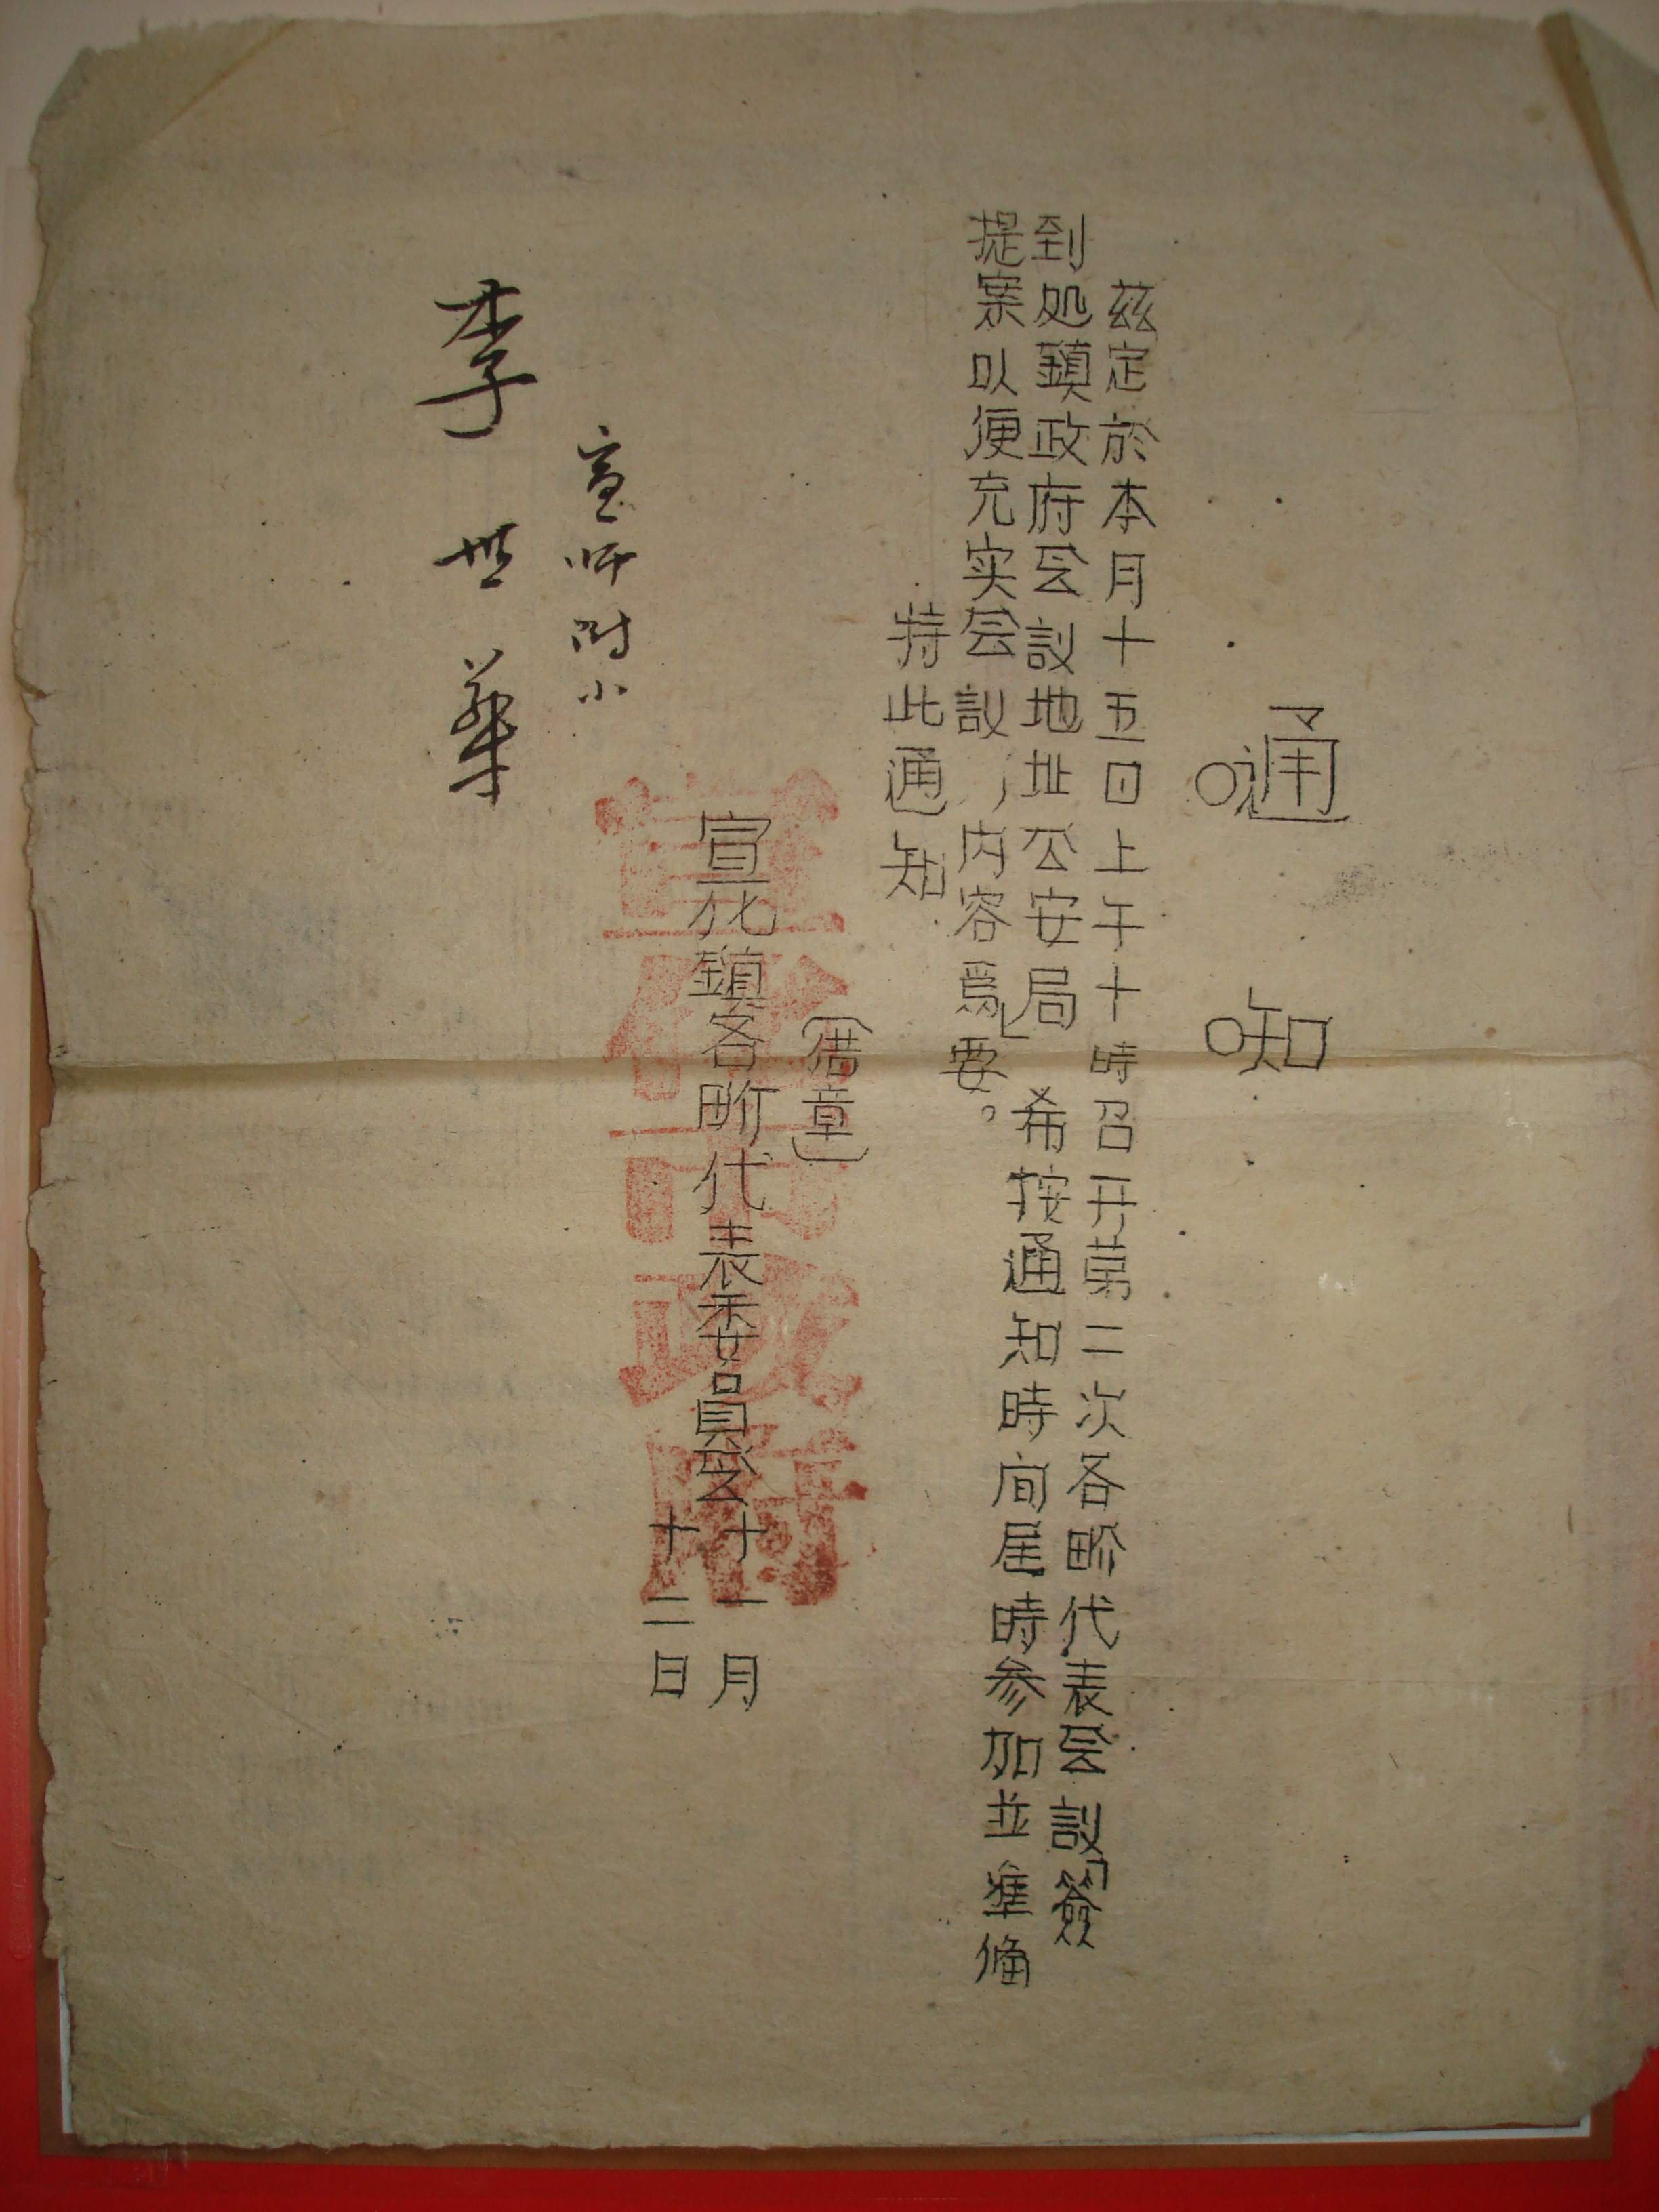 通知
茲定於本月十五日上午十時召开第二次各界代表会議「簽
到处鎮政府会議地址公安局」希按通知時间届時参加並準備
提案以便充实会議，内容為要。
特此通知
（借章）
宣化鎮各界代表委員会十一月
十二日
宣化市政府
宣师附小
李世華